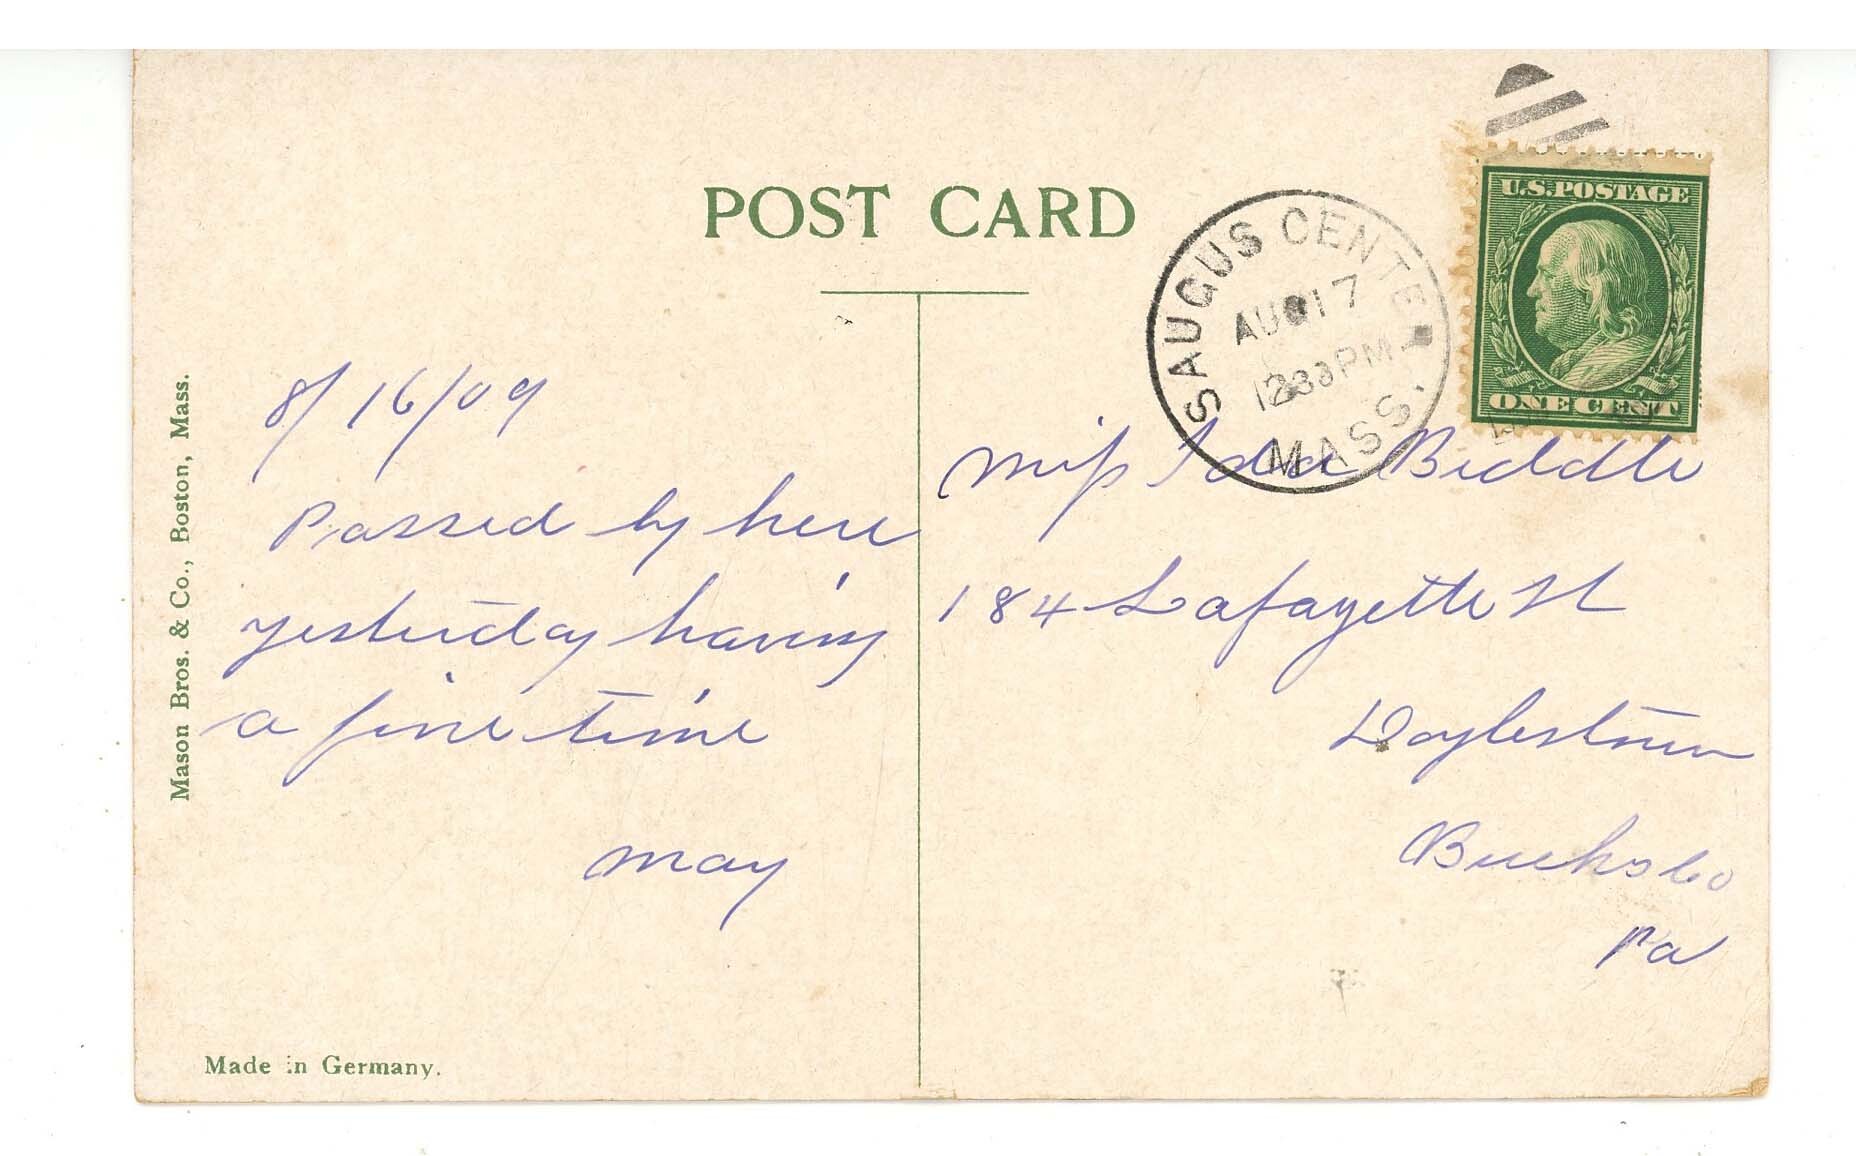 POST CARD
U.S. POSTAGE
ONE CENT
SAUGUS CENTER
AUG 17
1233 PM
MASS.
8/16/09
Passed by here
yesterday having
a fine time
May
Miss Ida Biddle
184 Lafayette St
Doylestown
Bucks Co
Pa
Mason Bros. & Co., Boston, Mass.
Made in Germany.